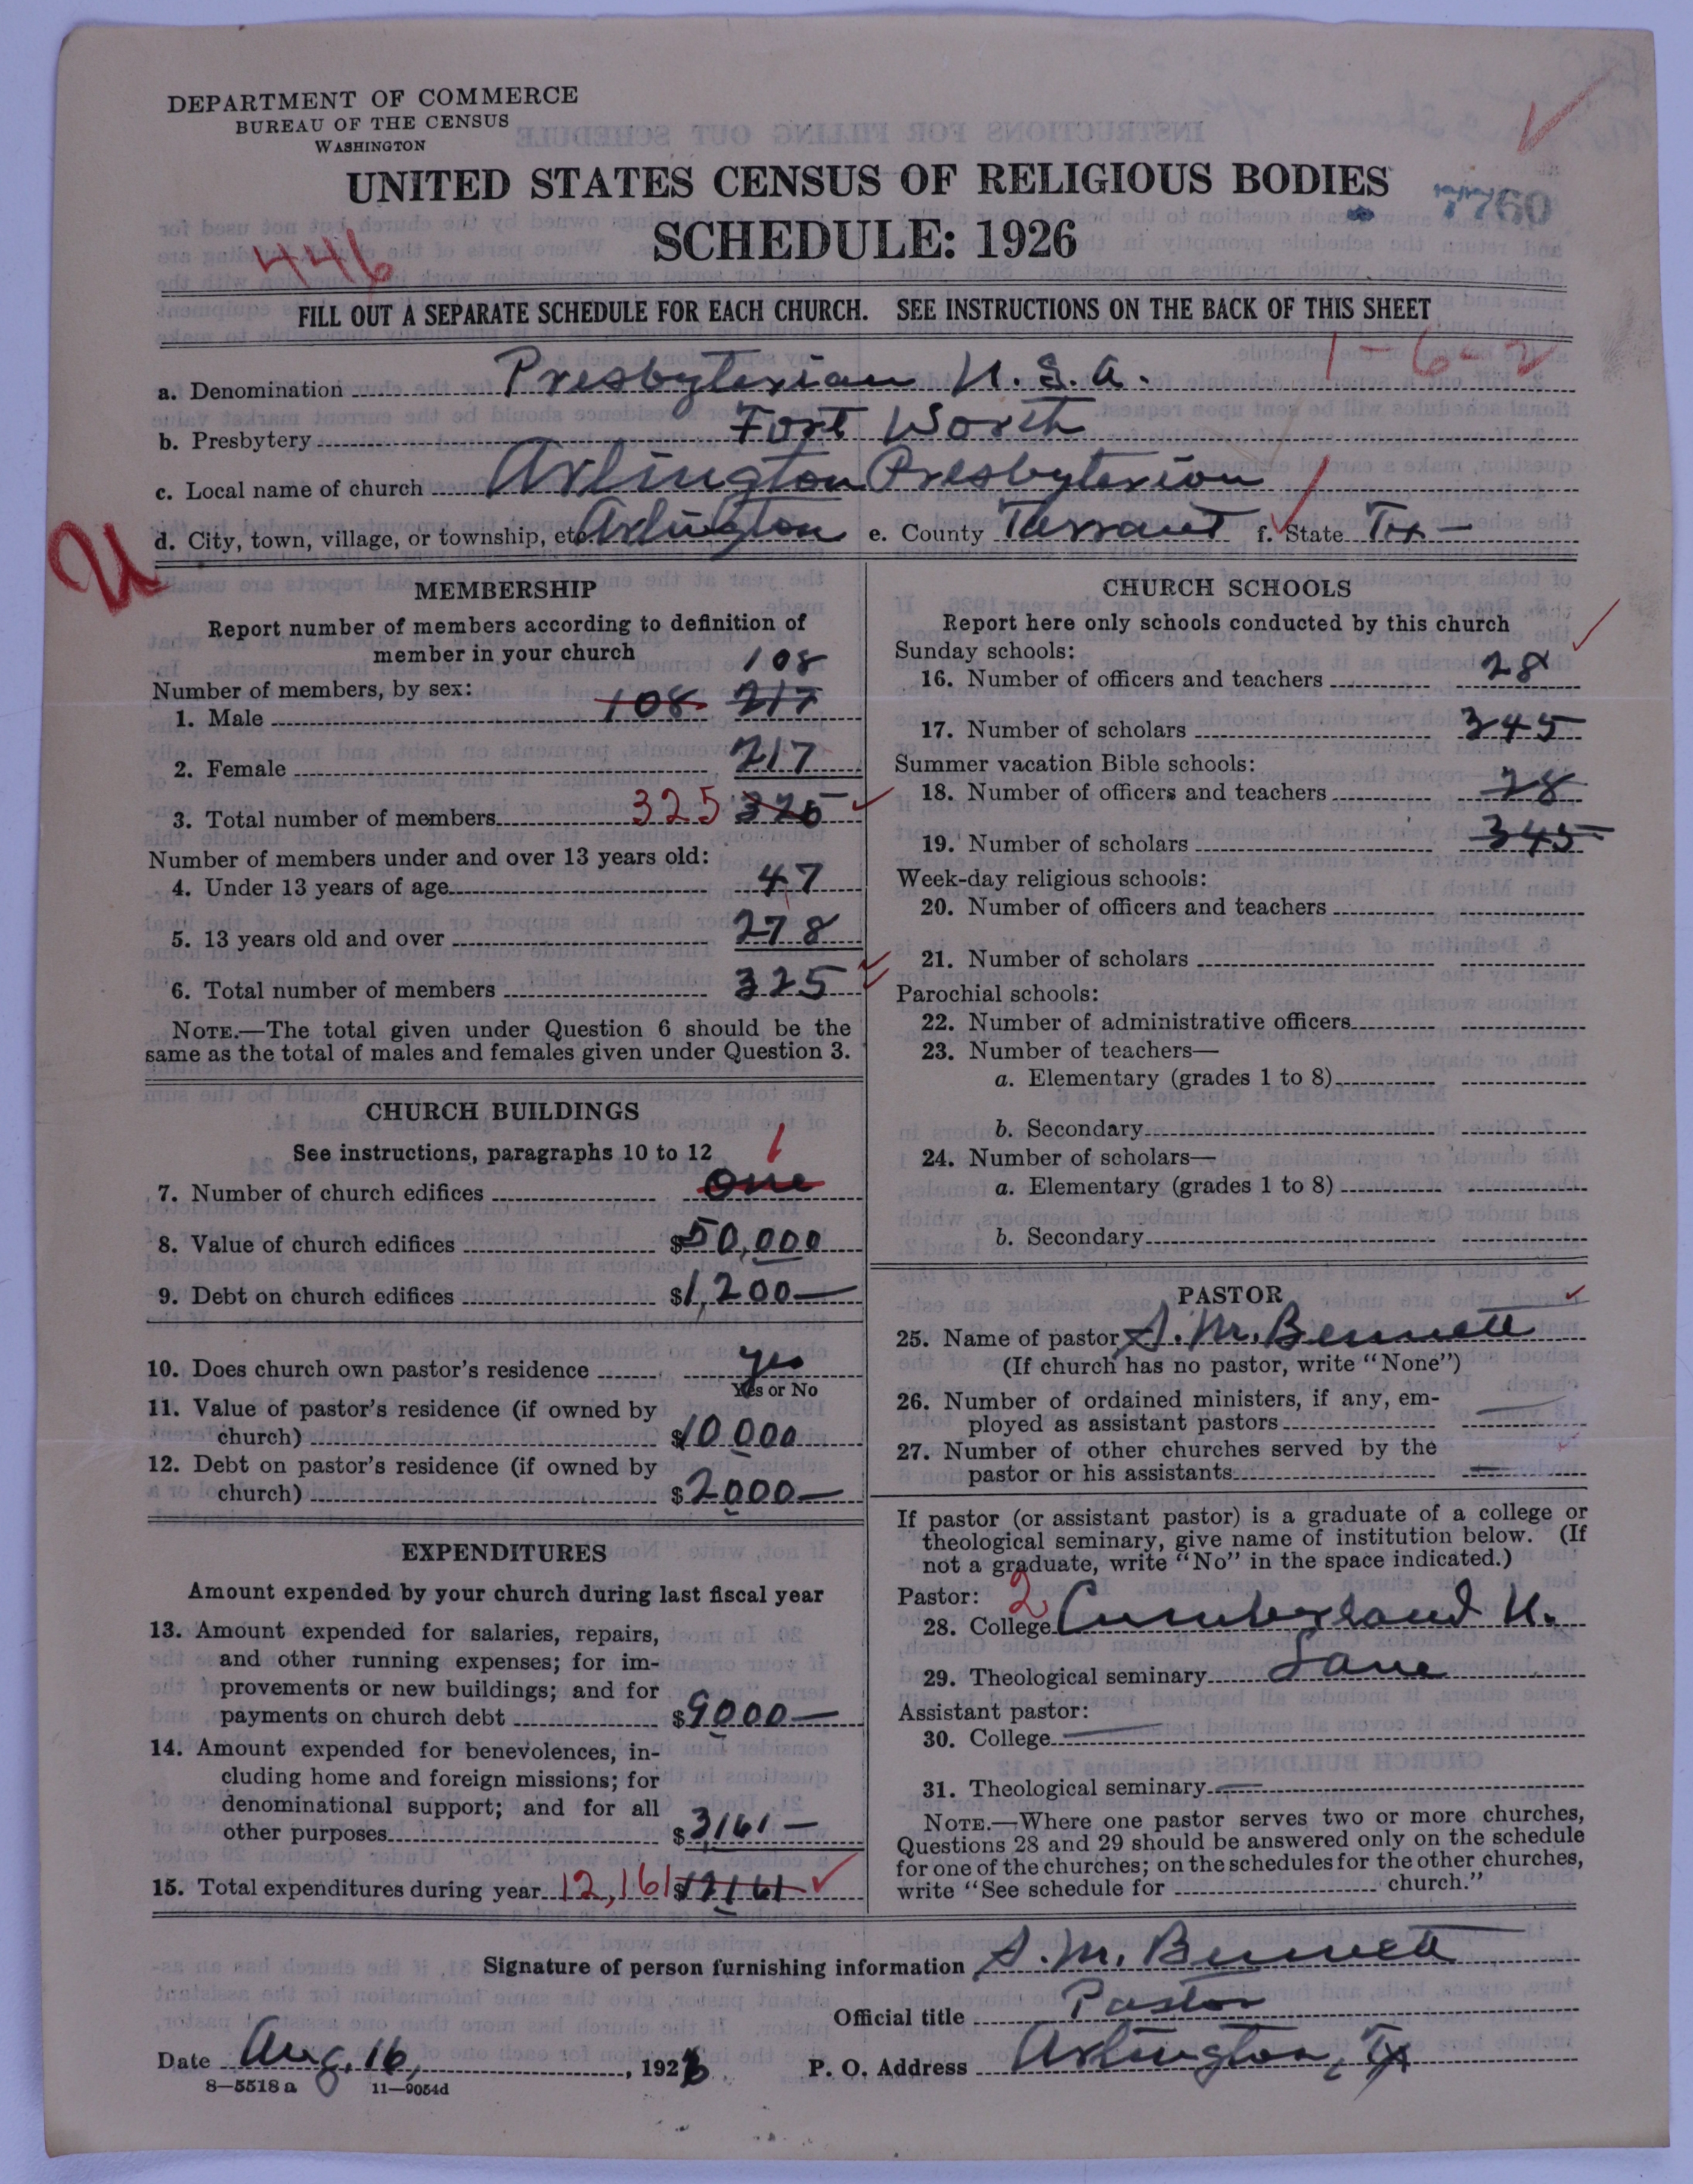 DEPARTMENT OF COMMERCE
BUREAU OF THE CENSUS
WASHINGTON
UNITED STATES CENSUS OF RELIGIOUS BODIES
7760
SCHEDULE: 1926
446
FILL OUT A SEPARATE SCHEDULE FOR EACH CHURCH. SEE INSTRUCTIONS ON THE BACK OF THIS SHEET
1-6-2
a. Denomination Presbyterian U.S.A.
b. Presbytery Fort Worth
c. Local name of church Arlington Presbyterian
d. City, town, village, or township, etc. Arlington e. County Tarrant f. State Tex
MEMBERSHIP
Report number of members according to definition of
member in your church
108
Number of members, by sex:
1. Male 108 217
2. Female 217
3. Total number of members 325 325
Number of members under and over 13 years old:
4. Under 13 years of age 47
5. 13 years old and over 278
6. Total number of members 325
NOTE.—The total given under Question 6 should be the
same as the total of males and females given under Question 3.
CHURCH BUILDINGS
See instructions, paragraphs 10 to 12
1
7. Number of church edifices One
8. Value of church edifices $50,000
9. Debt on church edifices $1,200—
10. Does church own pastor's residence yes
Yes or No
11. Value of pastor's residence (if owned by
church) $10000
12. Debt on pastor's residence (if owned by
church) $2000—
EXPENDITURES
Amount expended by your church during last fiscal year
13. Amount expended for salaries, repairs,
and other running expenses; for im-
provements or new buildings; and for
payments on church debt $9000—
14. Amount expended for benevolences, in-
cluding home and foreign missions; for
denominational support; and for all
other purposes $3161—
15. Total expenditures during year 12,161 $12161
CHURCH SCHOOLS
Report here only schools conducted by this church
Sunday schools:
16. Number of officers and teachers 28
17. Number of scholars 345
Summer vacation Bible schools:
18. Number of officers and teachers 28
19. Number of scholars 345
Week-day religious schools:
20. Number of officers and teachers
21. Number of scholars
Parochial schools:
22. Number of administrative officers
23. Number of teachers—
a. Elementary (grades 1 to 8)
b. Secondary
24. Number of scholars—
a. Elementary (grades 1 to 8)
b. Secondary
PASTOR
25. Name of pastor S. M. Bennett
(If church has no pastor, write "None")
26. Number of ordained ministers, if any, em-
ployed as assistant pastors —
27. Number of other churches served by the
pastor or his assistants —
If pastor (or assistant pastor) is a graduate of a college or
theological seminary, give name of institution below. (If
not a graduate, write "No" in the space indicated.)
Pastor: 2
28. College Cumberland U.
29. Theological seminary Lane
Assistant pastor:
30. College —
31. Theological seminary —
NOTE.—Where one pastor serves two or more churches,
Questions 28 and 29 should be answered only on the schedule
for one of the churches; on the schedules for the other churches,
write "See schedule for church."
Signature of person furnishing information S. M. Bennett
Official title Pastor
Date Aug. 16, 1926 P. O. Address Arlington, Tx
8—5518 a 11—9054d